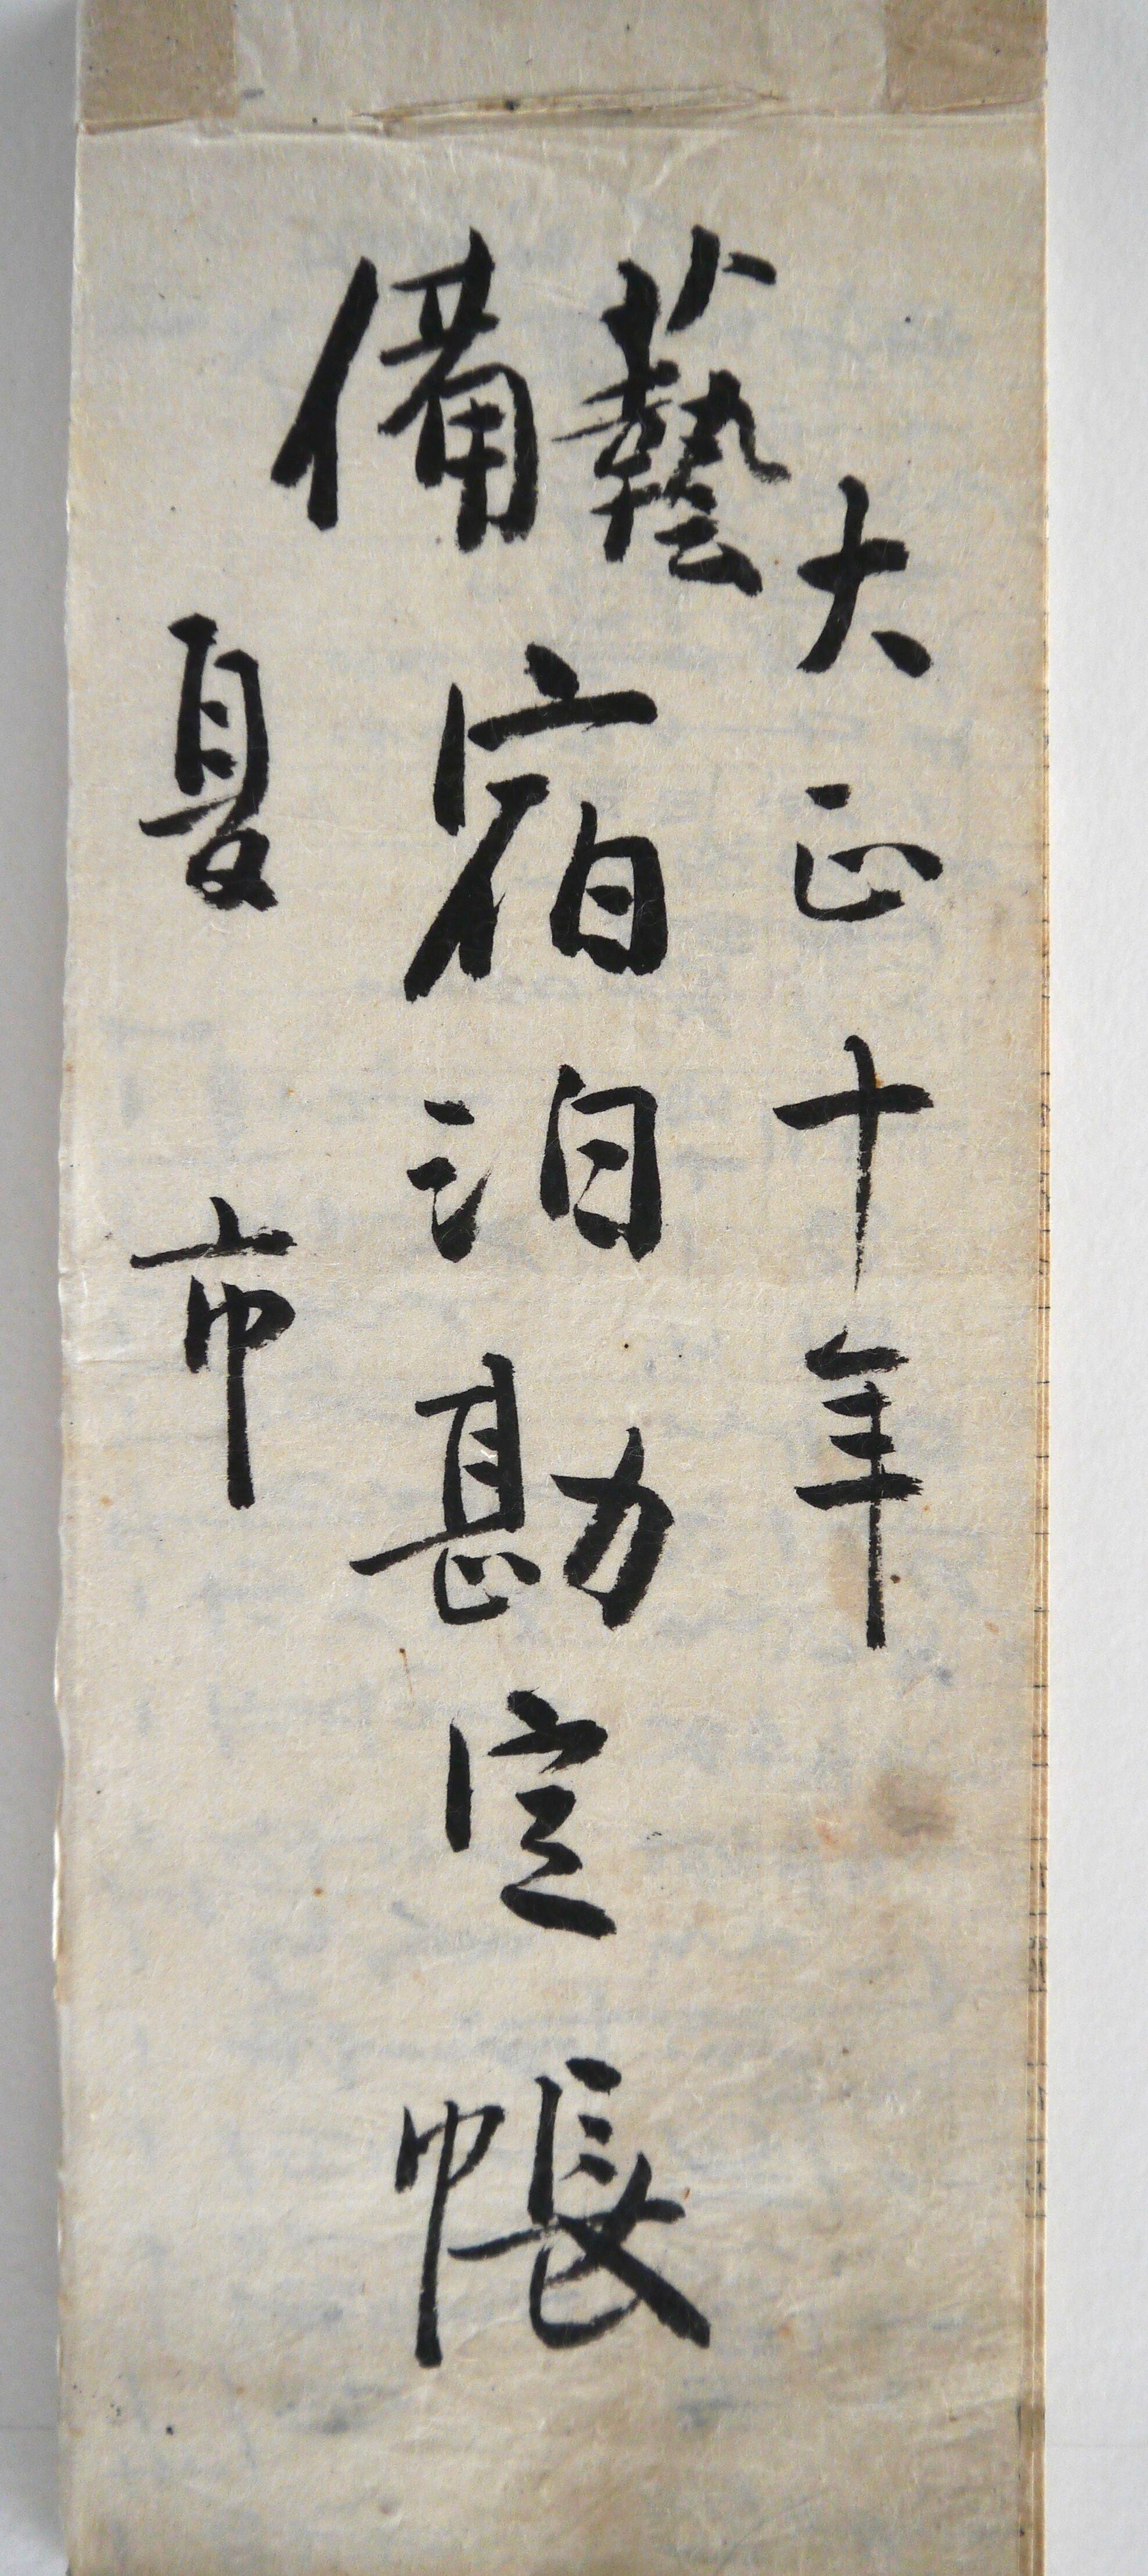 大正十年
藝備
宿泊勘定帳
夏市